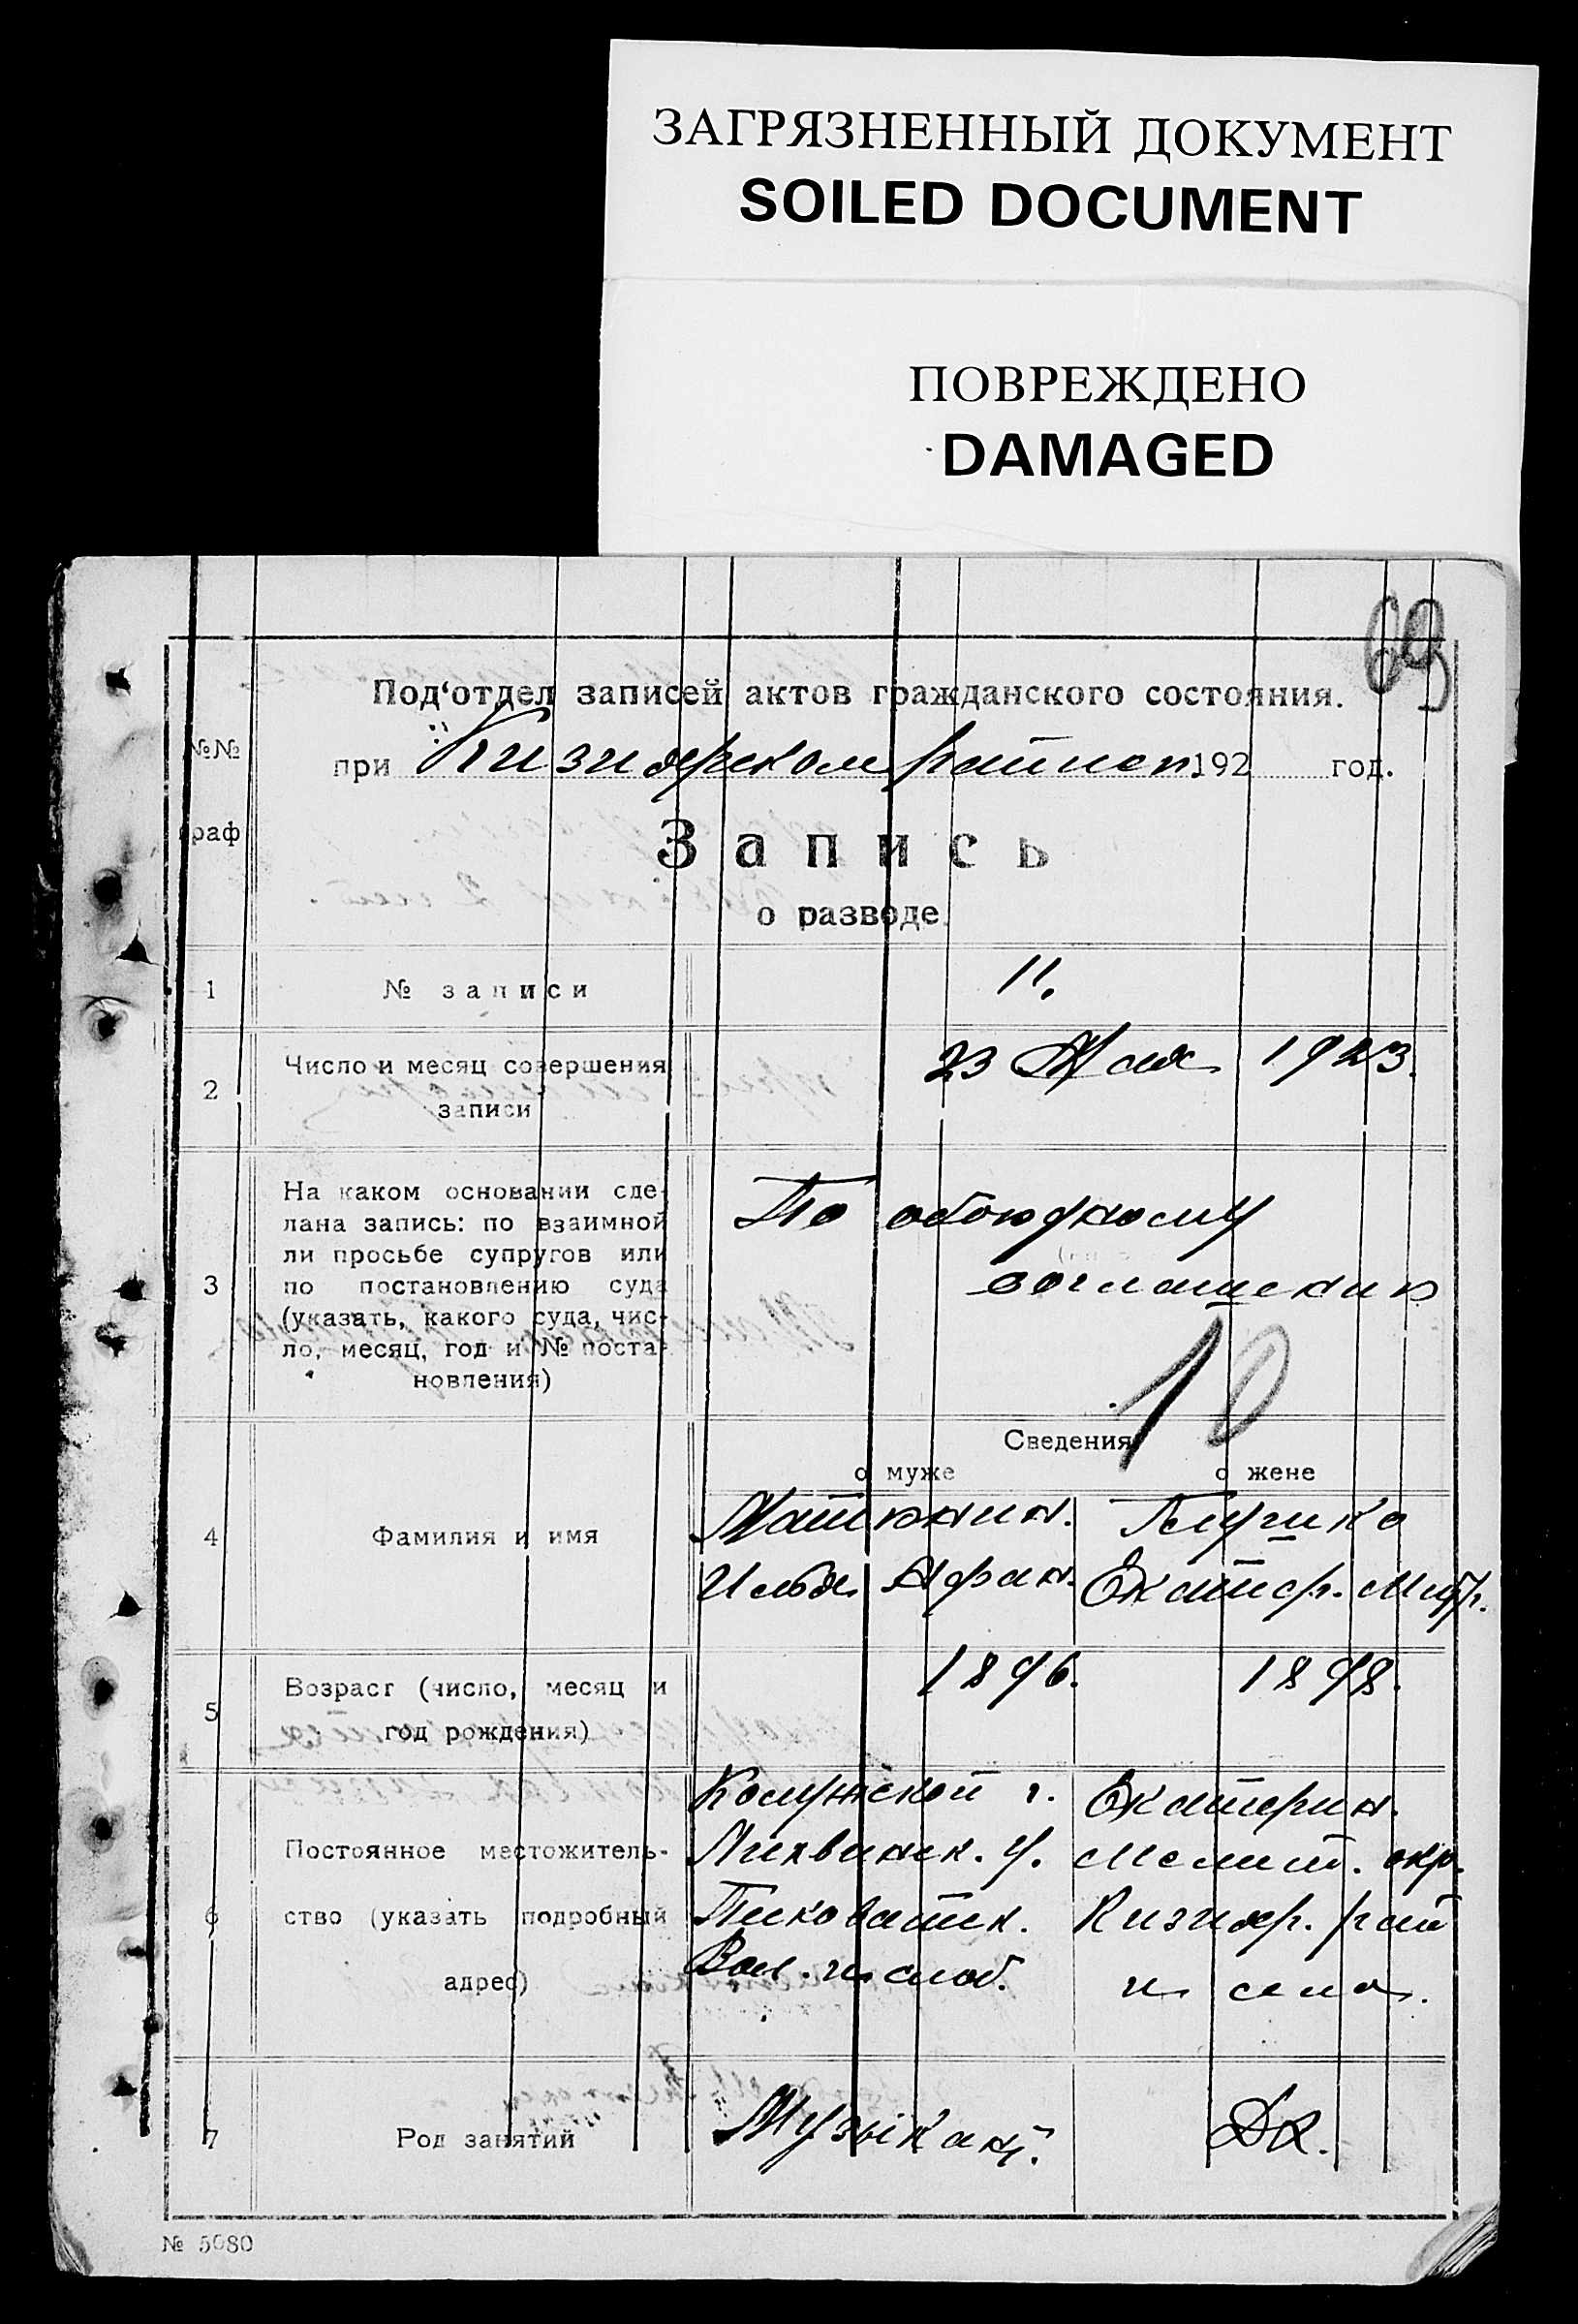 ЗАГРЯЗНЕННЫЙ ДОКУМЕНТ
SOILED DOCUMENT
ПОВРЕЖДЕНО
DAMAGED
69
Под‘отдел записей актов гражданского состояния.
№№
граф
при Кизиярском райисп. 192 год.
Запись
о разводе.
1 № записи 11.
2 Число и месяц совершения
записи
23 Мая 1923.
3 На каком основании сде-
лана запись: по взаимной
ли просьбе супругов или
по постановлению суда
(указать, какого суда, чис-
ло, месяц, год и № поста-
новления)
По обоюдному
соглашению
10
Сведения
о муже о жене
4 Фамилия и имя
Илья Афан. Екатер. Митр.
5 Возраст (число, месяц и
год рождения)
1896. 1898.
6 Постоянное местожитель-
ство (указать подробный
адрес)
Калужской г. Екатерин.
Лихвинск. у. Мелит. окр.
Кизияр. рай
Вол. и слоб. и села.
7 Род занятий Музыкант. ДХ.
№ 5080